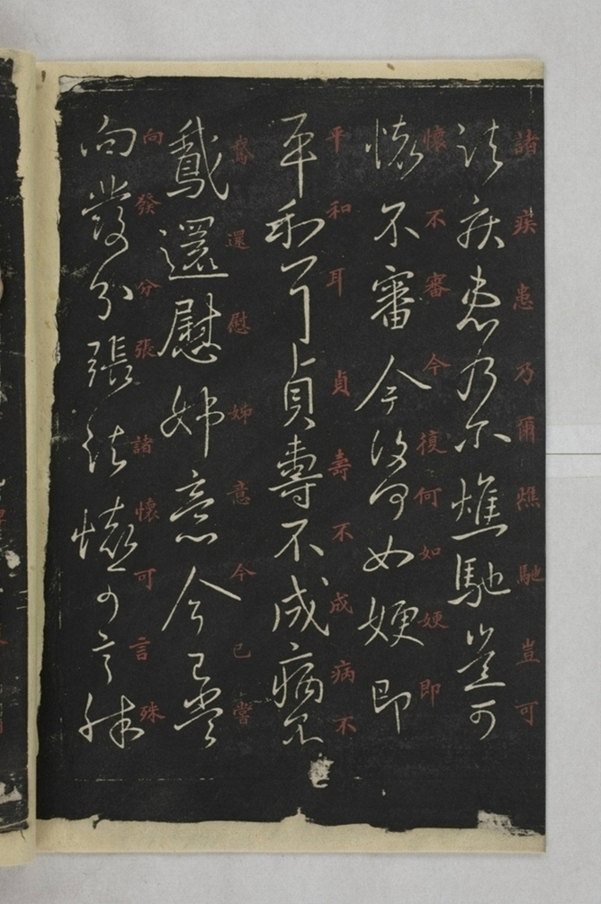 諸疾患乃爾燋馳豈可
諸疾患乃尔燋馳豈可
懷不審今復何如㛹即
懷不審今復何如㛹即
平和耳貞壽不成病不
平和耳貞壽不成病不
鵞還慰姊意今已嘗
鵞還慰姊意今已嘗
向發分張諸懷可言殊
向發分張諸懷可言殊